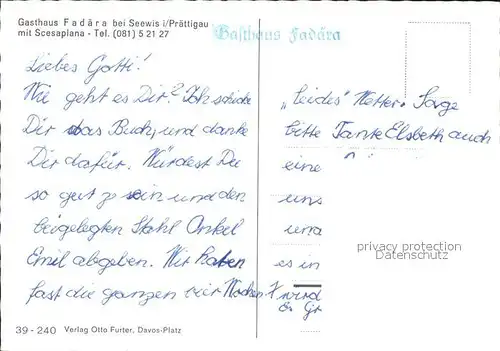 Gasthaus Fadära bei Seewis i/Prättigau
mit Scesaplana - Tel. (081) 5 21 27
Gasthaus Fadära
Liebes Gotti!
Wie geht es Dir? Ich schicke
Dir das Buch, und danke
Dir dafür. Würdest Du
so gut sein und den
beigelegten Stahl Onkel
Emil abgeben. Wir haben
fast die ganzen vier Wochen
"leides" Wetter. Sage
bitte Tante Elsbeth auch
eine
uns
und
es in
wird
privacy protection
Datenschutz
39 - 240 Verlag Otto Furter, Davos-Platz